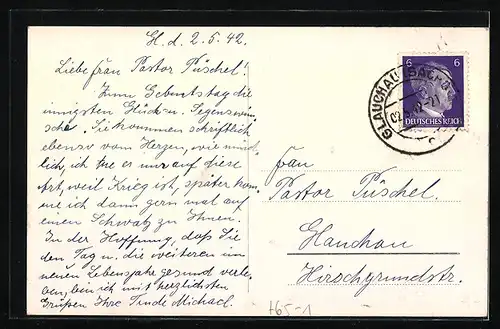 Gl. d. 2. 5. 42.
Liebe Frau Pastor Püschel!
Zum Geburtstag die
innigsten Glück- u. Segenswün-
sche. Sie kommen schriftlich
ebenso vom Herzen, wie münd-
lich, ich tue es nur auf diese
Art, weil Krieg ist, später kom-
me ich dann gern mal auf
einen Schwatz zu Ihnen.
In der Hoffnung, daß Sie
den Tag u. die weiteren im
neuen Lebensjahre gesund verle-
ben, bin ich mit herzlichsten
Grüßen Ihre Michael.
6 6
DEUTSCHES REICH
GLAUCHAU (SACHS)
Frau
Pastor Püschel.
Glauchau
Hirschgrundstr.
H65-1